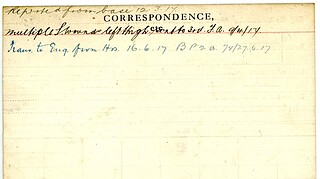 Reported from base 12.3.17
CORRESPONDENCE,
multiple S wounds left thigh to 3rd. F.A. 9/4/17.
Trans. to Eng. from Hos. 16.6.17 B P 2 a. 74/27.6.17